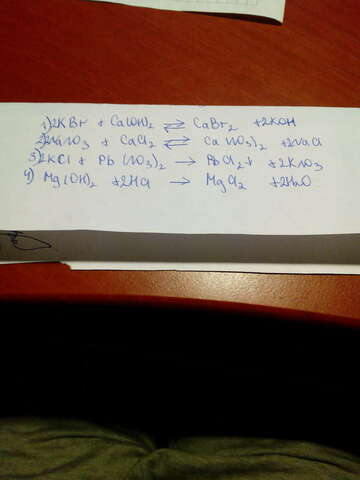 1) 2KBr + Ca(OH)₂ ⇄ CaBr₂ + 2KOH
2) 2NaNO₃ + CaCl₂ ⇄ Ca(NO₃)₂ + 2NaCl
3) 2KCl + Pb(NO₃)₂ → PbCl₂↓ + 2KNO₃
4) Mg(OH)₂ + 2HCl → MgCl₂ + 2H₂O